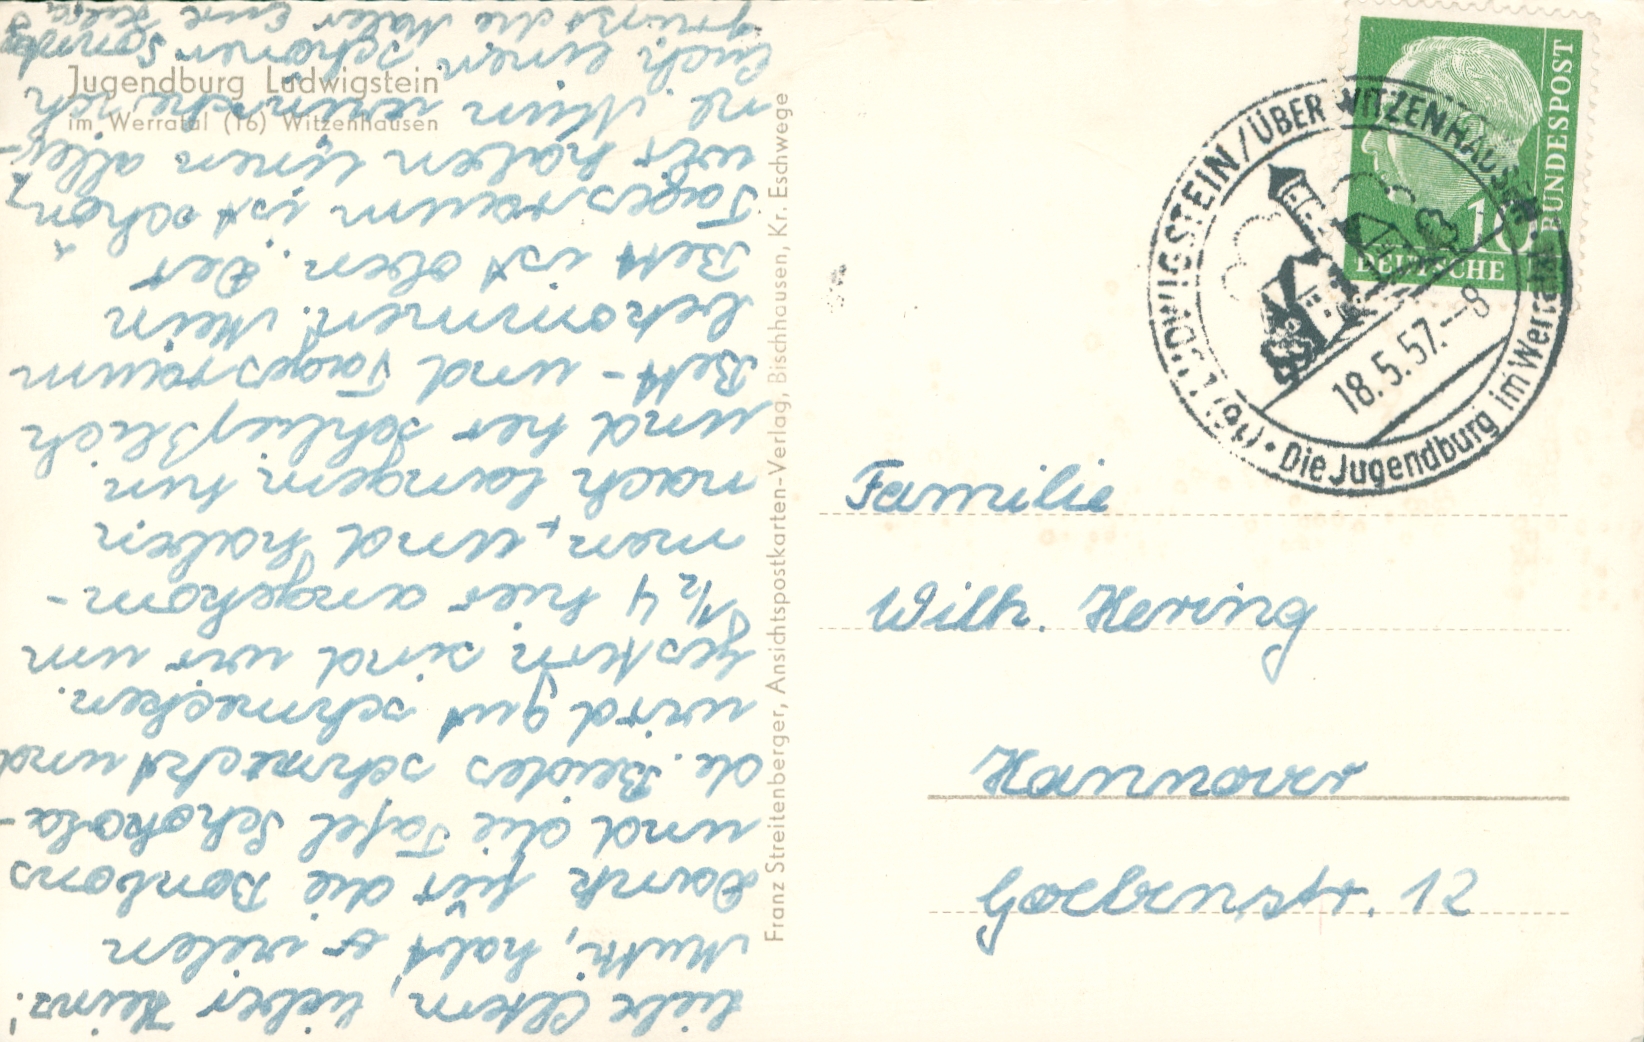 Jugendburg Ludwigstein
im Werratal (16) Witzenhausen
Liebe Eltern, lieber Heinz!
Mutti, habt vielen
Dank für die Bonbons
und die Tafel Schokola-
de. Beides schmeckt und
wird gut schmecken.
Gestern sind wir um
1/2 4 hier angekom-
men, und haben
nach langem hin
und her schließlich
Bett- und Tagesraum
bekommen. Mein
Bett ist oben. Der
Tagesraum ist schön,
wir haben einen allei-
ne. Nun wünsche ich
Euch einen schönen Sonntag
grüßt die Maler Eure Helga
Franz Streitenberger, Ansichtspostkarten-Verlag, Bischhausen, Kr. Eschwege
DEUTSCHE
BUNDESPOST
10
(16) LUDWIGSTEIN/ÜBER WITZENHAUSEN
18.5.57.-8
Die Jugendburg im Werratal
Familie
Wilh. Hering
Hannover
Goebenstr. 12